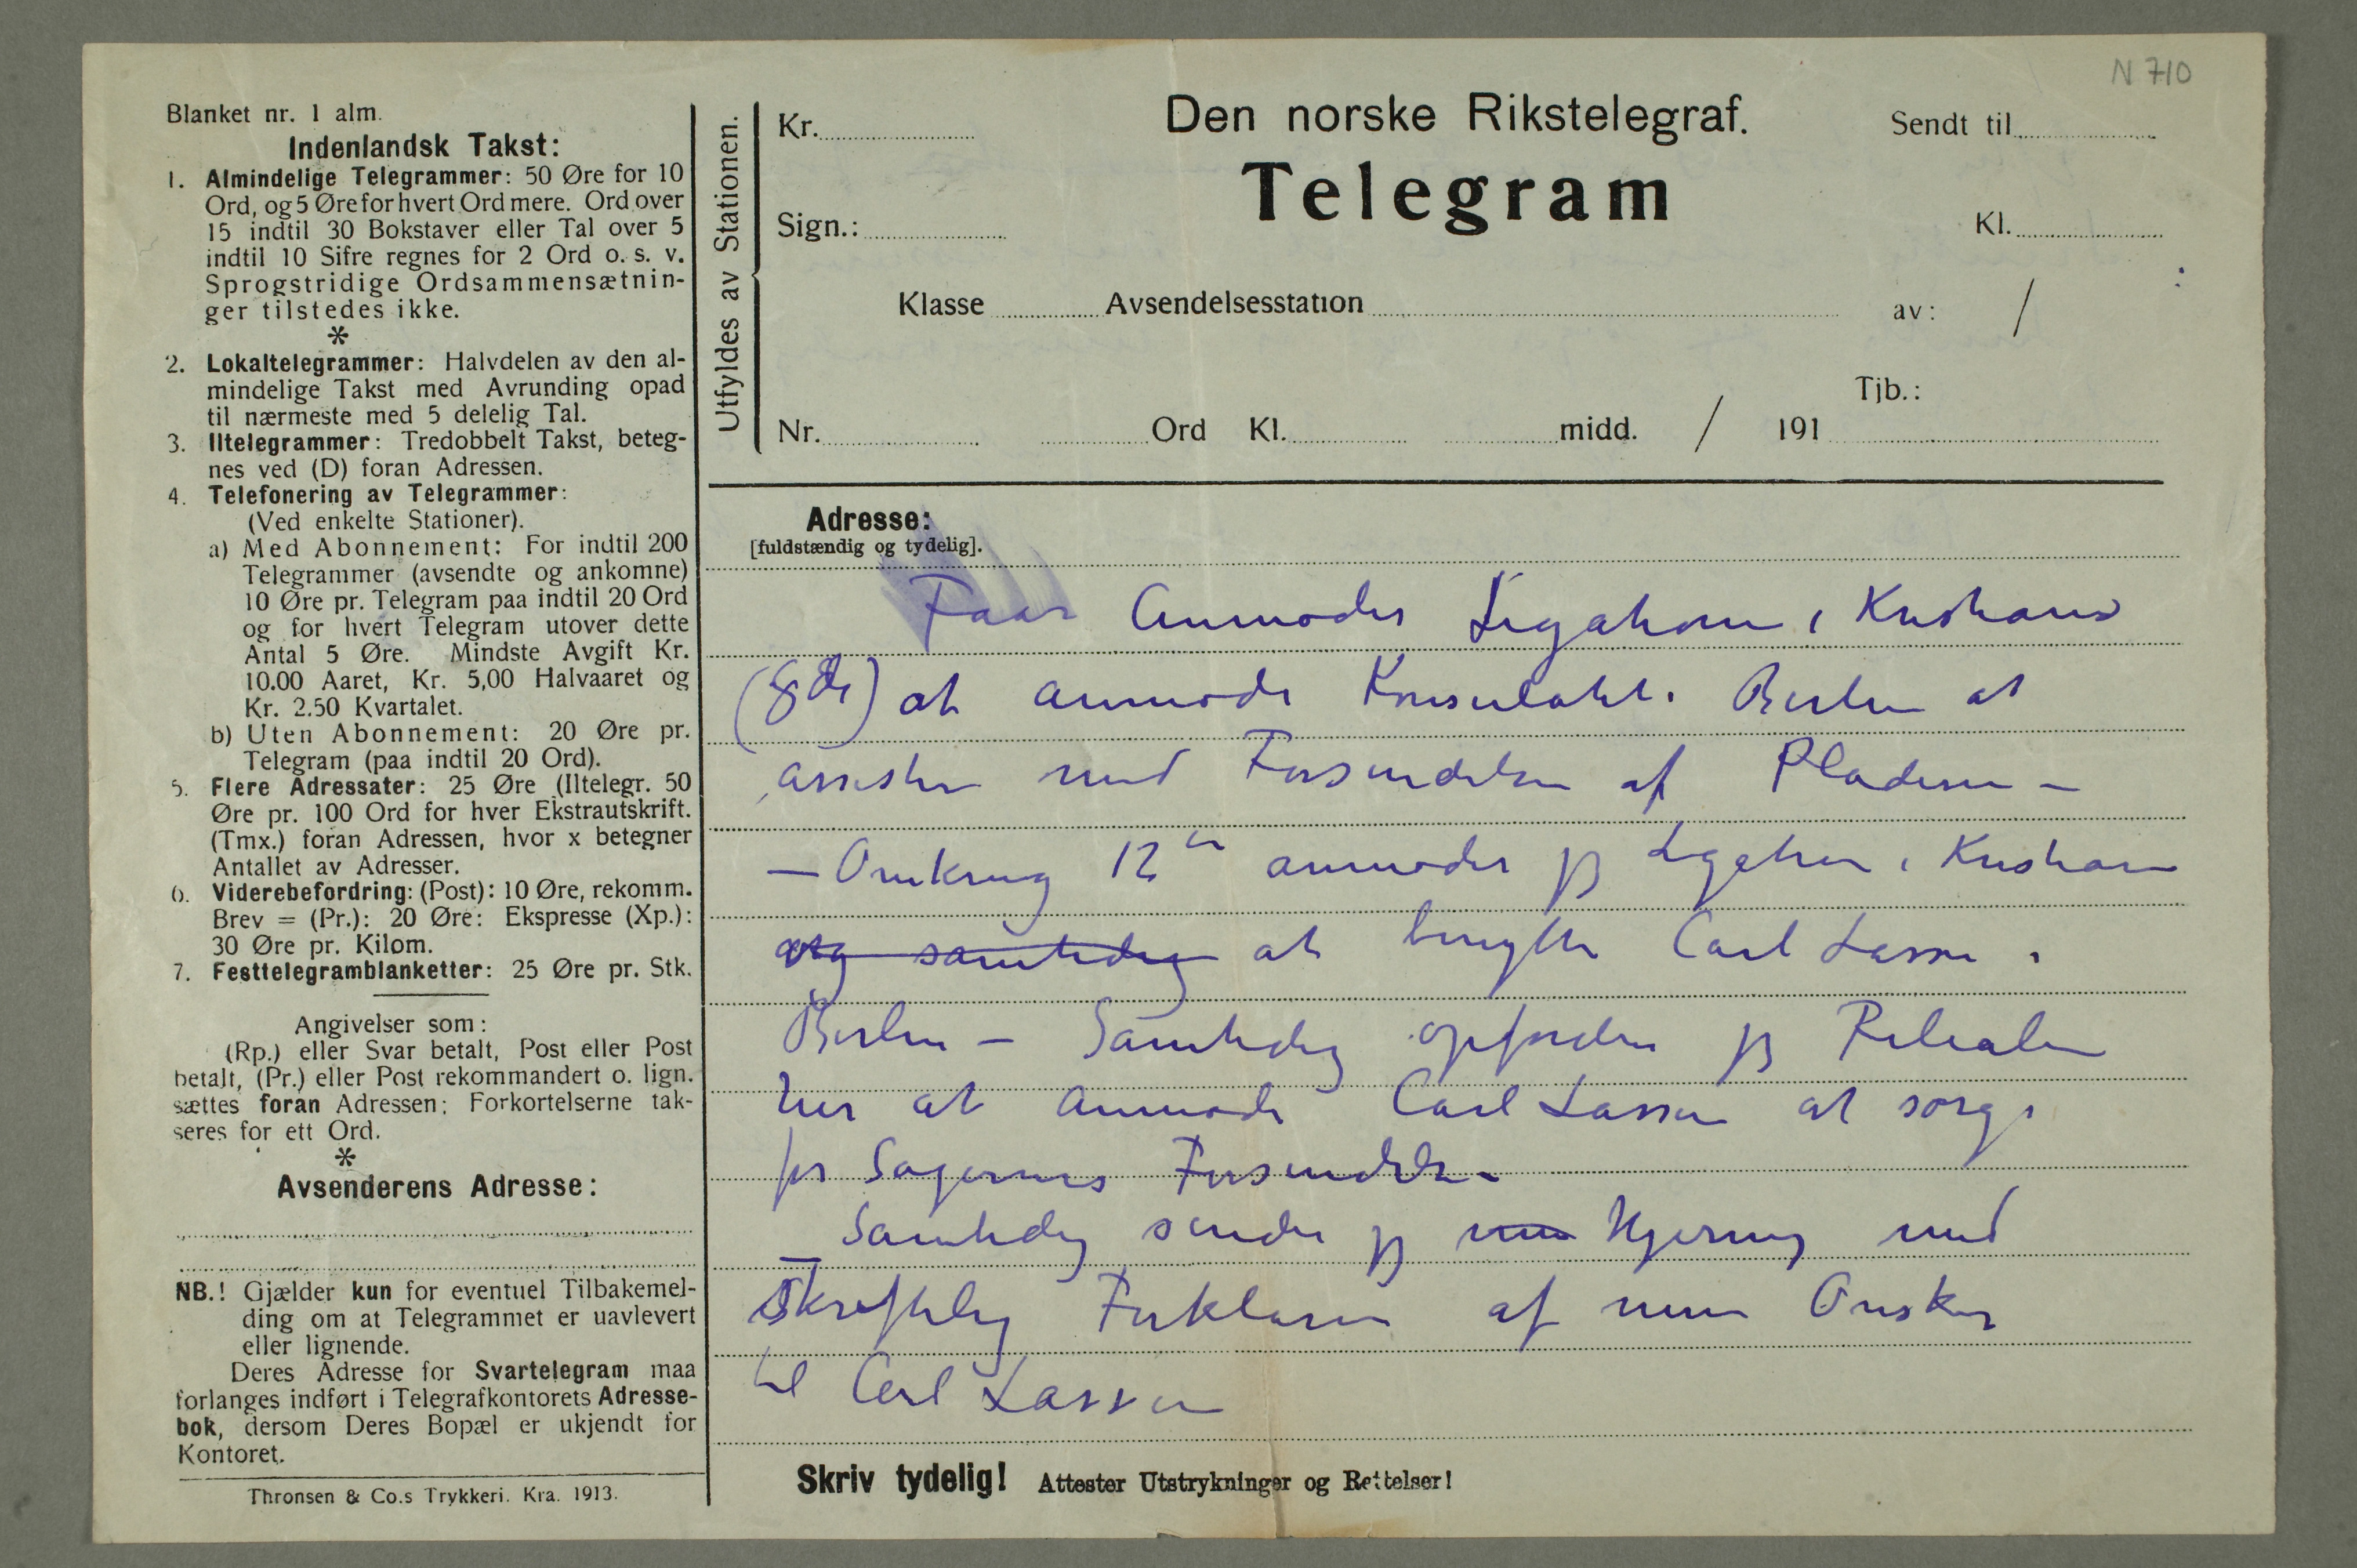 N 710
Blanket nr. 1 alm.
Indenlandsk Takst:
1. Almindelige Telegrammer: 50 Øre for 10
Ord, og 5 Øre for hvert Ord mere. Ord over
15 indtil 30 Bokstaver eller Tal over 5
indtil 10 Sifre regnes for 2 Ord o. s. v.
Sprogstridige Ordsammensætnin-
ger tilstedes ikke.
*
2. Lokaltelegrammer: Halvdelen av den al-
mindelige Takst med Avrunding opad
til nærmeste med 5 delelig Tal.
3. Iltelegrammer: Tredobbelt Takst, beteg-
nes ved (D) foran Adressen.
4. Telefonering av Telegrammer:
(Ved enkelte Stationer).
a) Med Abonnement: For indtil 200
Telegrammer (avsendte og ankomne)
10 Øre pr. Telegram paa indtil 20 Ord
og for hvert Telegram utover dette
Antal 5 Øre. Mindste Avgift Kr.
10.00 Aaret, Kr. 5,00 Halvaaret og
Kr. 2.50 Kvartalet.
b) Uten Abonnement: 20 Øre pr.
Telegram (paa indtil 20 Ord).
5. Flere Adressater: 25 Øre (Iltelegr. 50
Øre pr. 100 Ord for hver Ekstrautskrift.
(Tmx.) foran Adressen, hvor x betegner
Antallet av Adresser.
6. Viderebefordring: (Post): 10 Øre, rekomm.
Brev = (Pr.): 20 Øre: Ekspresse (Xp.):
30 Øre pr. Kilom.
7. Festtelegramblanketter: 25 Øre pr. Stk.
Angivelser som:
(Rp.) eller Svar betalt, Post eller Post
betalt, (Pr.) eller Post rekommandert o. lign.
sættes foran Adressen; Forkortelserne tak-
seres for ett Ord.
*
Avsenderens Adresse:
NB.! Gjælder kun for eventuel Tilbakemel-
ding om at Telegrammet er uavlevert
eller lignende.
Deres Adresse for Svartelegram maa
forlanges indført i Telegrafkontorets Adresse-
bok, dersom Deres Bopæl er ukjendt for
Kontoret.
Thronsen & Co.s Trykkeri. Kra. 1913.
Utfyldes av Stationen.
Kr.
Den norske Rikstelegraf.
Sendt til
Telegram
Sign.:
Kl.
Klasse Avsendelsesstation av: /
Tjb.:
Nr. Ord Kl. midd. / 191
Adresse:
[fuldstændig og tydelig].
Faar Anmoder Legationen i Kristiania
(8de) at anmode Konsulatet i Berlin at
assistere med Forsendelsen af Pladerne –
– Omkring 12te anmoder jeg Legationen i Kristiania
og samtidig at benytte Carl Lassen i
Berlin – Samtidig opfordrer jeg Filialen
her at anmode Carl Lassen at sørge
for Sagernes Forsendelse –
– Samtidig sender jeg min Hjerning med
Skriftlig Forklaring af mine Ønsker
til Carl Lassen
Skriv tydelig! Attester Utstrykninger og Rettelser!